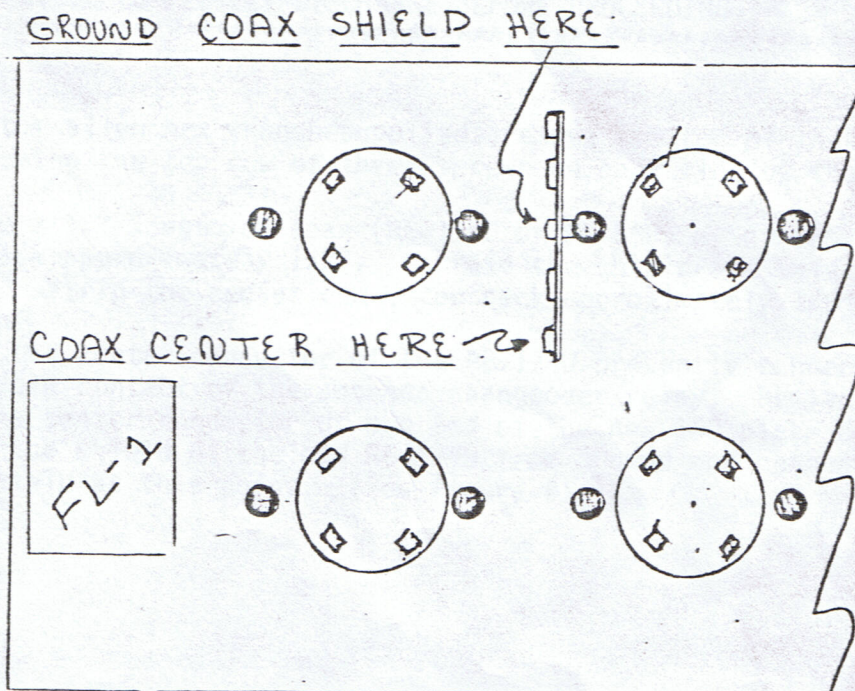 GROUND COAX SHIELD HERE
COAX CENTER HERE
FL-1